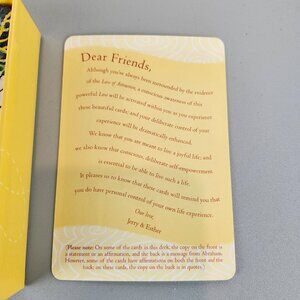 Dear Friends,
Although you've always been surrounded by the evidence
of the Law of Attraction, a conscious awareness of this
powerful Law will be activated within you as you experience
these beautiful cards; and your deliberate control of your
experience will be dramatically enhanced.
We know that you are meant to live a joyful life; and
we also know that conscious, deliberate self-empowerment
is essential to be able to live such a life.
It pleases us to know that these cards will remind you that
you do have personal control of your own life experience.
Our love,
Jerry & Esther
(Please note: On some of the cards in this deck, the copy on the front is
a statement or an affirmation, and the back is a message from Abraham.
However, some of the cards have affirmations on both the front and the
back; on these cards, the copy on the back is in quotes.)